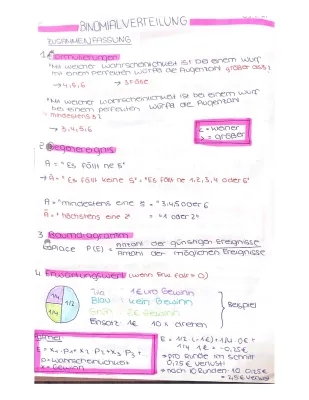 BINOMIALVERTEILUNG
ZUSAMMENFASSUNG
1. Formulierungen
"Mit welcher Wahrscheinlichkeit ist bei einem Wurf
mit einem perfekten Würfel die Augenzahl größer als 3"
→ 4,5,6 → 3 < 456
"Mit welcher Wahrscheinlichkeit ist bei einem Wurf
bei einem perfekten Würfel die Augenzahl
mindestens 3?
→ 3,4,5,6
< = kleiner
> = größer
2. Gegenereignis
A = "Es fällt ne 5"
→ Ā = "Es fällt keine 5" = "Es fällt ne 1,2,3,4 oder 6"
A = "mindestens eine 3" = "3 4 5 oder 6"
Ā = "höchstens eine 2" = "1 oder 2"
3. Baumdiagramm
Laplace P(E) = Anzahl der günstigen Ereignisse
Anzahl der möglichen Ereignisse
4. Erwartungswert (wenn Erw. fair = 0)
1/4 1/2 1/4
1 Euro Gewinn
Blau: kein Gewinn
2€ Gewinn
Einsatz: 1€ 10 x drehen
Beispiel
E = x₁·P₁+x₂ P₂+x₃ P₃+...
P = Wahrscheinlichkeit
x = Gewinn
→ pro Runde im Schnitt
0,25€ Verlust!
→ nach 10 Runden 10·0,25€
= 2,5€ Verlust